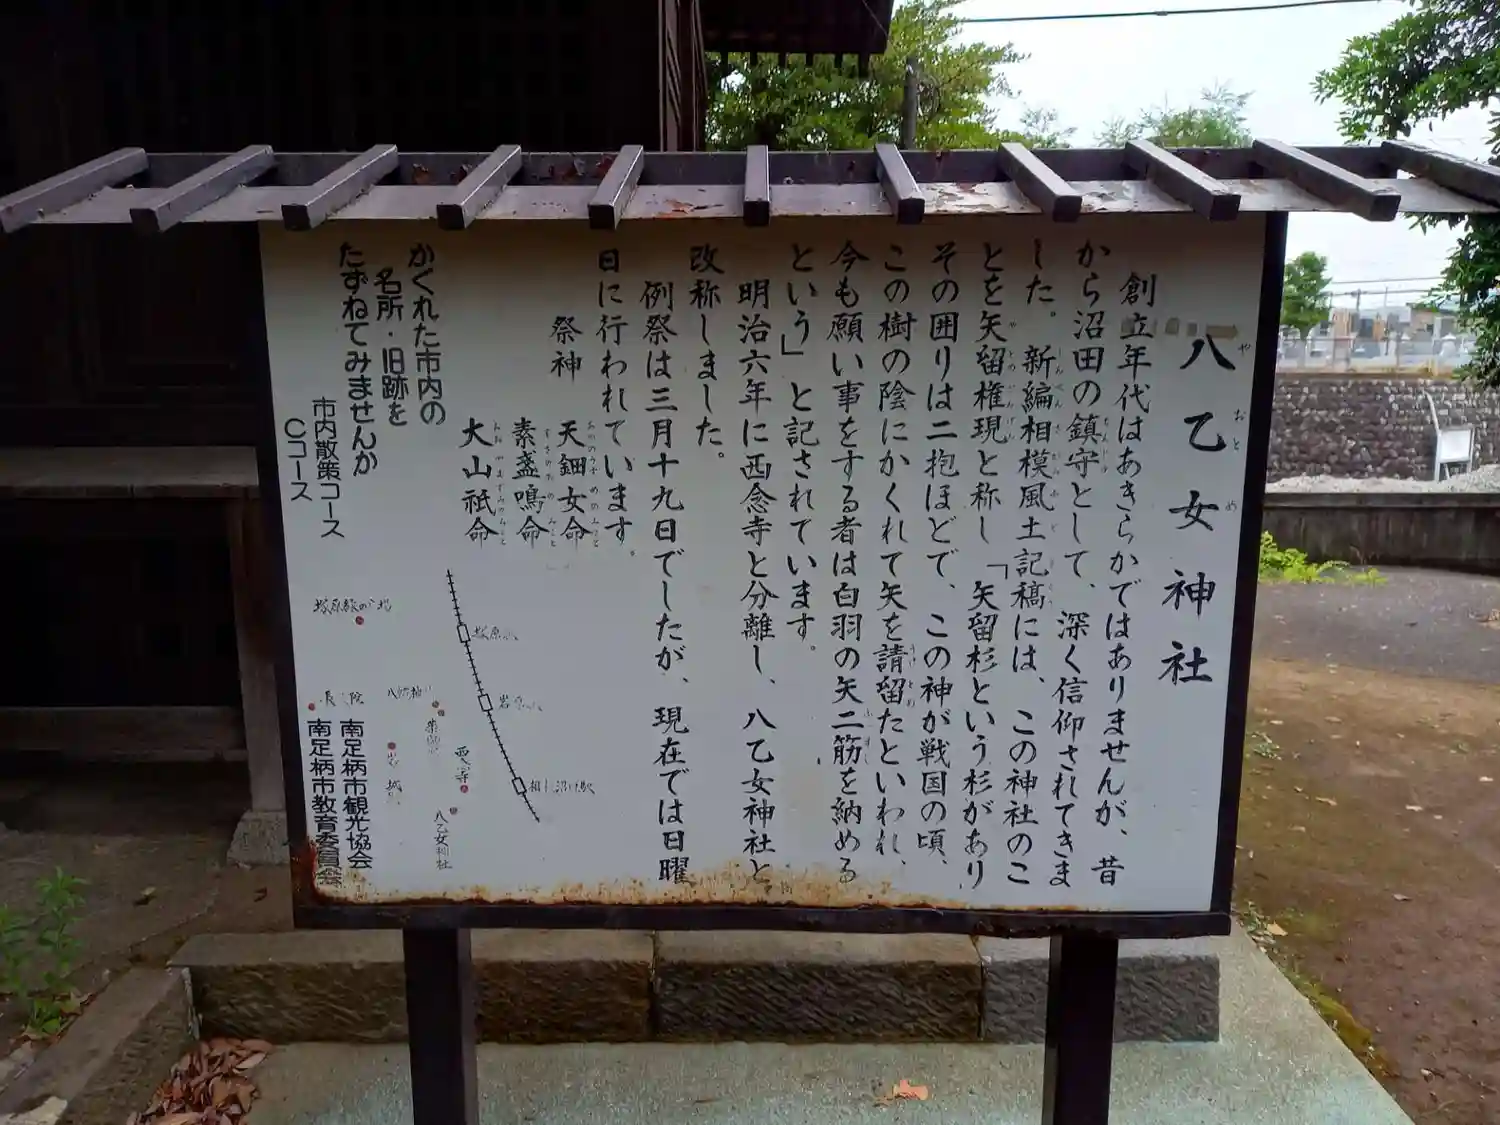 八乙女神社
や おと め
創立年代はあきらかではありませんが、昔
から沼田の鎮守として、深く信仰されてきま
した。新編相模風土記稿には、この神社のこ
とを矢留権現と称し「矢留杉という杉があり
その囲りは二抱ほどで、この神が戦国の頃、
この樹の陰にかくれて矢を請留たといわれ、
今も願い事をする者は白羽の矢二筋を納める
という」と記されています。
明治六年に西念寺と分離し、八乙女神社と
改称しました。
例祭は三月十九日でしたが、現在では日曜
日に行われています。
祭神
天鈿女命
素盞鳴命
大山祇命
かくれた市内の
名所・旧跡を
たずねてみませんか
市内散策コース
Cコース
塚原
岩原
西念寺
八乙女神社
南足柄市観光協会
南足柄市教育委員会